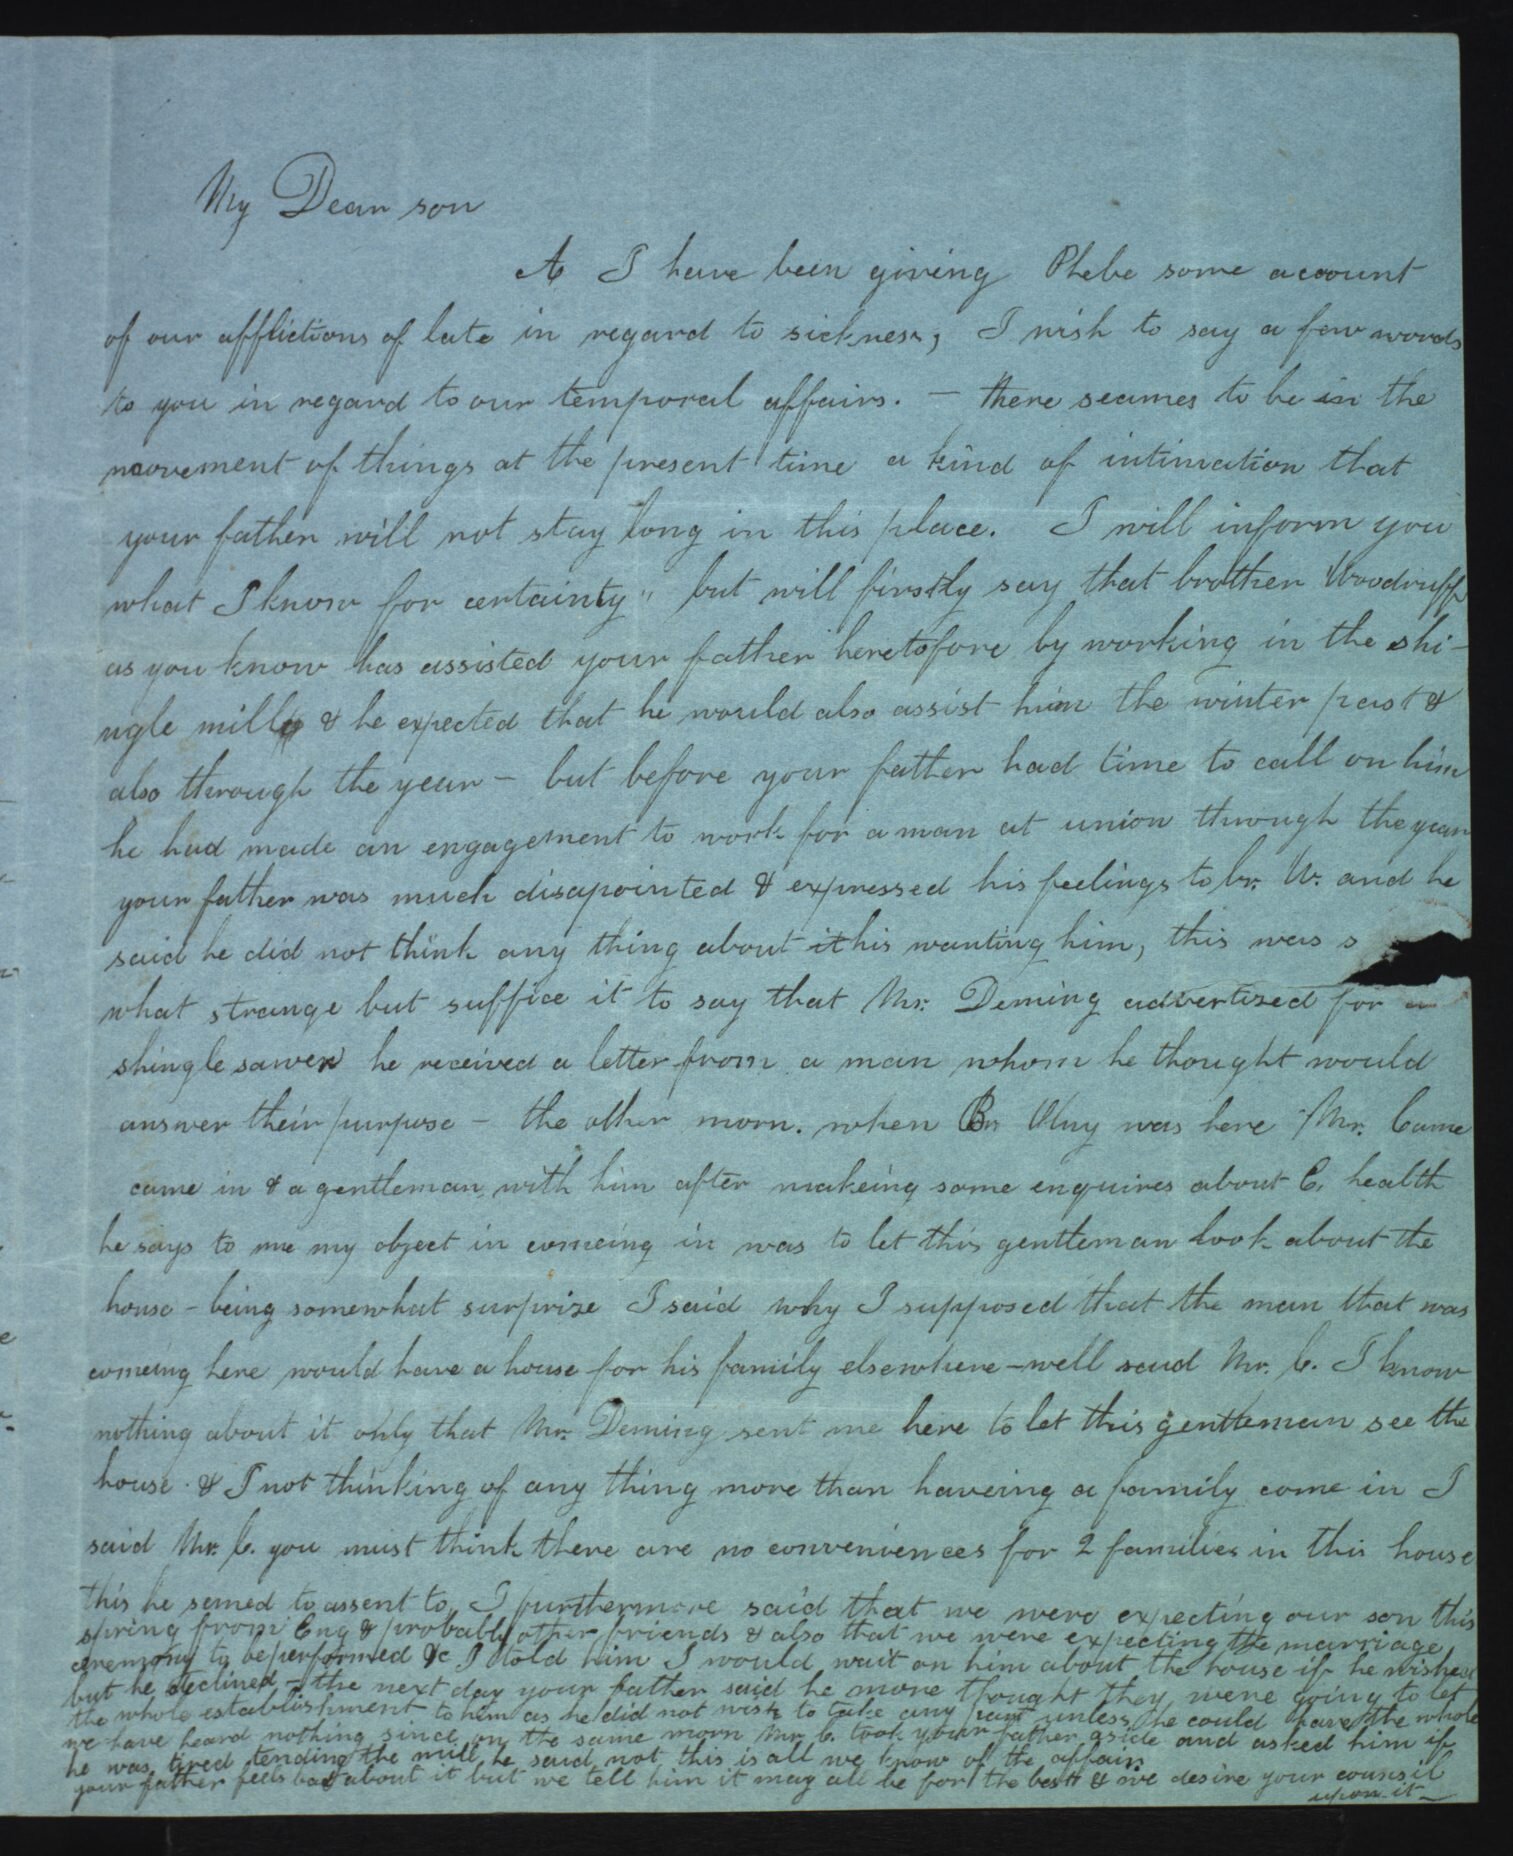 My Dear son
As I have been giving Phebe some account
of our afflictions of late in regard to sickness, I wish to say a few words
to you in regard to our temporal affairs. — there seames to be in the
moovement of things at the present time a kind of intimation that
your father will not stay long in this place. I will inform you
what I know for certainty " but will firstly say that brother Woodruff
as you know has assisted your father heretofore by working in the shi-
ngle mill & he expected that he would also assist him the winter past &
also through the year — but before your father had time to call on him
he had made an engagement to work for a man at union through the year
your father was much disapointed & expressed his feelings to br. W. and he
said he did not think any thing about it his wanting him, this was s
what strange but suffice it to say that Mr. Deming advertised for a
shingle sawer he received a letter from a man whom he thought would
answer their purpose — the other morn. when Br was here Mr. Came
came in & a gentleman with him after makeing some enquires about C. health
he says to me my object in comeing in was to let this gentleman look about the
house — being somewhat surprize I said why I supposed that the man that was
comeing here would have a house for his family elsewhere — well said Mr. C. I know
nothing about it only that Mr. Deming sent me here to let this gentleman see the
house & I not thinking of any thing more than haveing a family come in I
said Mr. C. you must think there are no conveniences for 2 families in this house
this he semed to assent to, I furthermore said that we were expecting our son this
spring from Eng & probably other friends & also that we were expecting the marriage
ceremony to be performed &c I told him I would wait on him about the house if he wished
but he declined — the next day your father said he more thought they were going to let
the whole establishment to him as he did not wish to take any part unless he could have the whole
we have heard nothing since on the same morn Mr. C. took your father aside and asked him if
he was tired tending the mill, he said not this is all we know of the affair
your father feels bad about it but we tell him it may all be for the best & we desire your counsil
upon it —